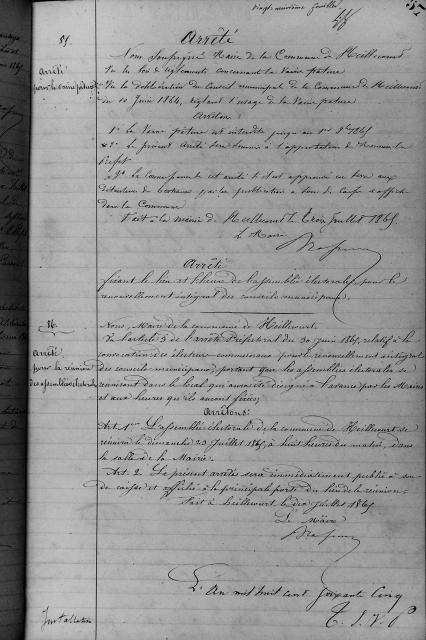 Vingt neuvième feuillet
55.
Arrêté
Nous Soussigné Maire de la Commune de Heillecourt
Arrêté
pour la vaine pâture
Vu les lois & règlements concernant la vaine pâture
Vu la délibération du Conseil municipal de la Commune de Heillecourt
du 10 Juin 1864, réglant l'usage de la vaine pature
Arrêtons :
1° la Vaine pâture est interdite jusqu'au 1er 1865
2° le présent Arrêté sera soumis à l'approbation de Monsieur le
Préfet
3° le
détenteurs de bestiaux par la publication à son de caisse & affiche
dans la Commune
Fait à la mairie de Heillecourt le Trois Juillet 1865
Le Maire
Arrêté
fixant le lieu et l'heure de l'assemblée électorale pour le
renouvellement intégral des conseils municipaux.
56.
Nous, Maire de la commune de Heillecourt.
Arrêté
pour la réunion
des assemblées électorales
Vu l'article 3 de l'arrêté Préfectoral du 30 Juin 1865, relatif à la
convocation des électeurs communaux pour le renouvellement intégral
des conseils municipaux, portant que les assemblées électorales se
réuniront dans le local qui aura été désigné à l'avance par les Maires
et aux heures qu'ils auront fixées;
Arrêtons:
Art. 1er L'assemblée électorale de la commune de Heillecourt se
réunira le dimanche 23 Juillet 1865, à huit heures du matin, dans
la salle de la Mairie.
Art. 2 Le présent arrêté sera immédiatement publié à son
de caisse et affiché à la principale porte du lieu de la réunion.
Fait à Heillecourt le dix Juillet 1865
Le maire
L'An mil huit cent soixante Cinq
Installation